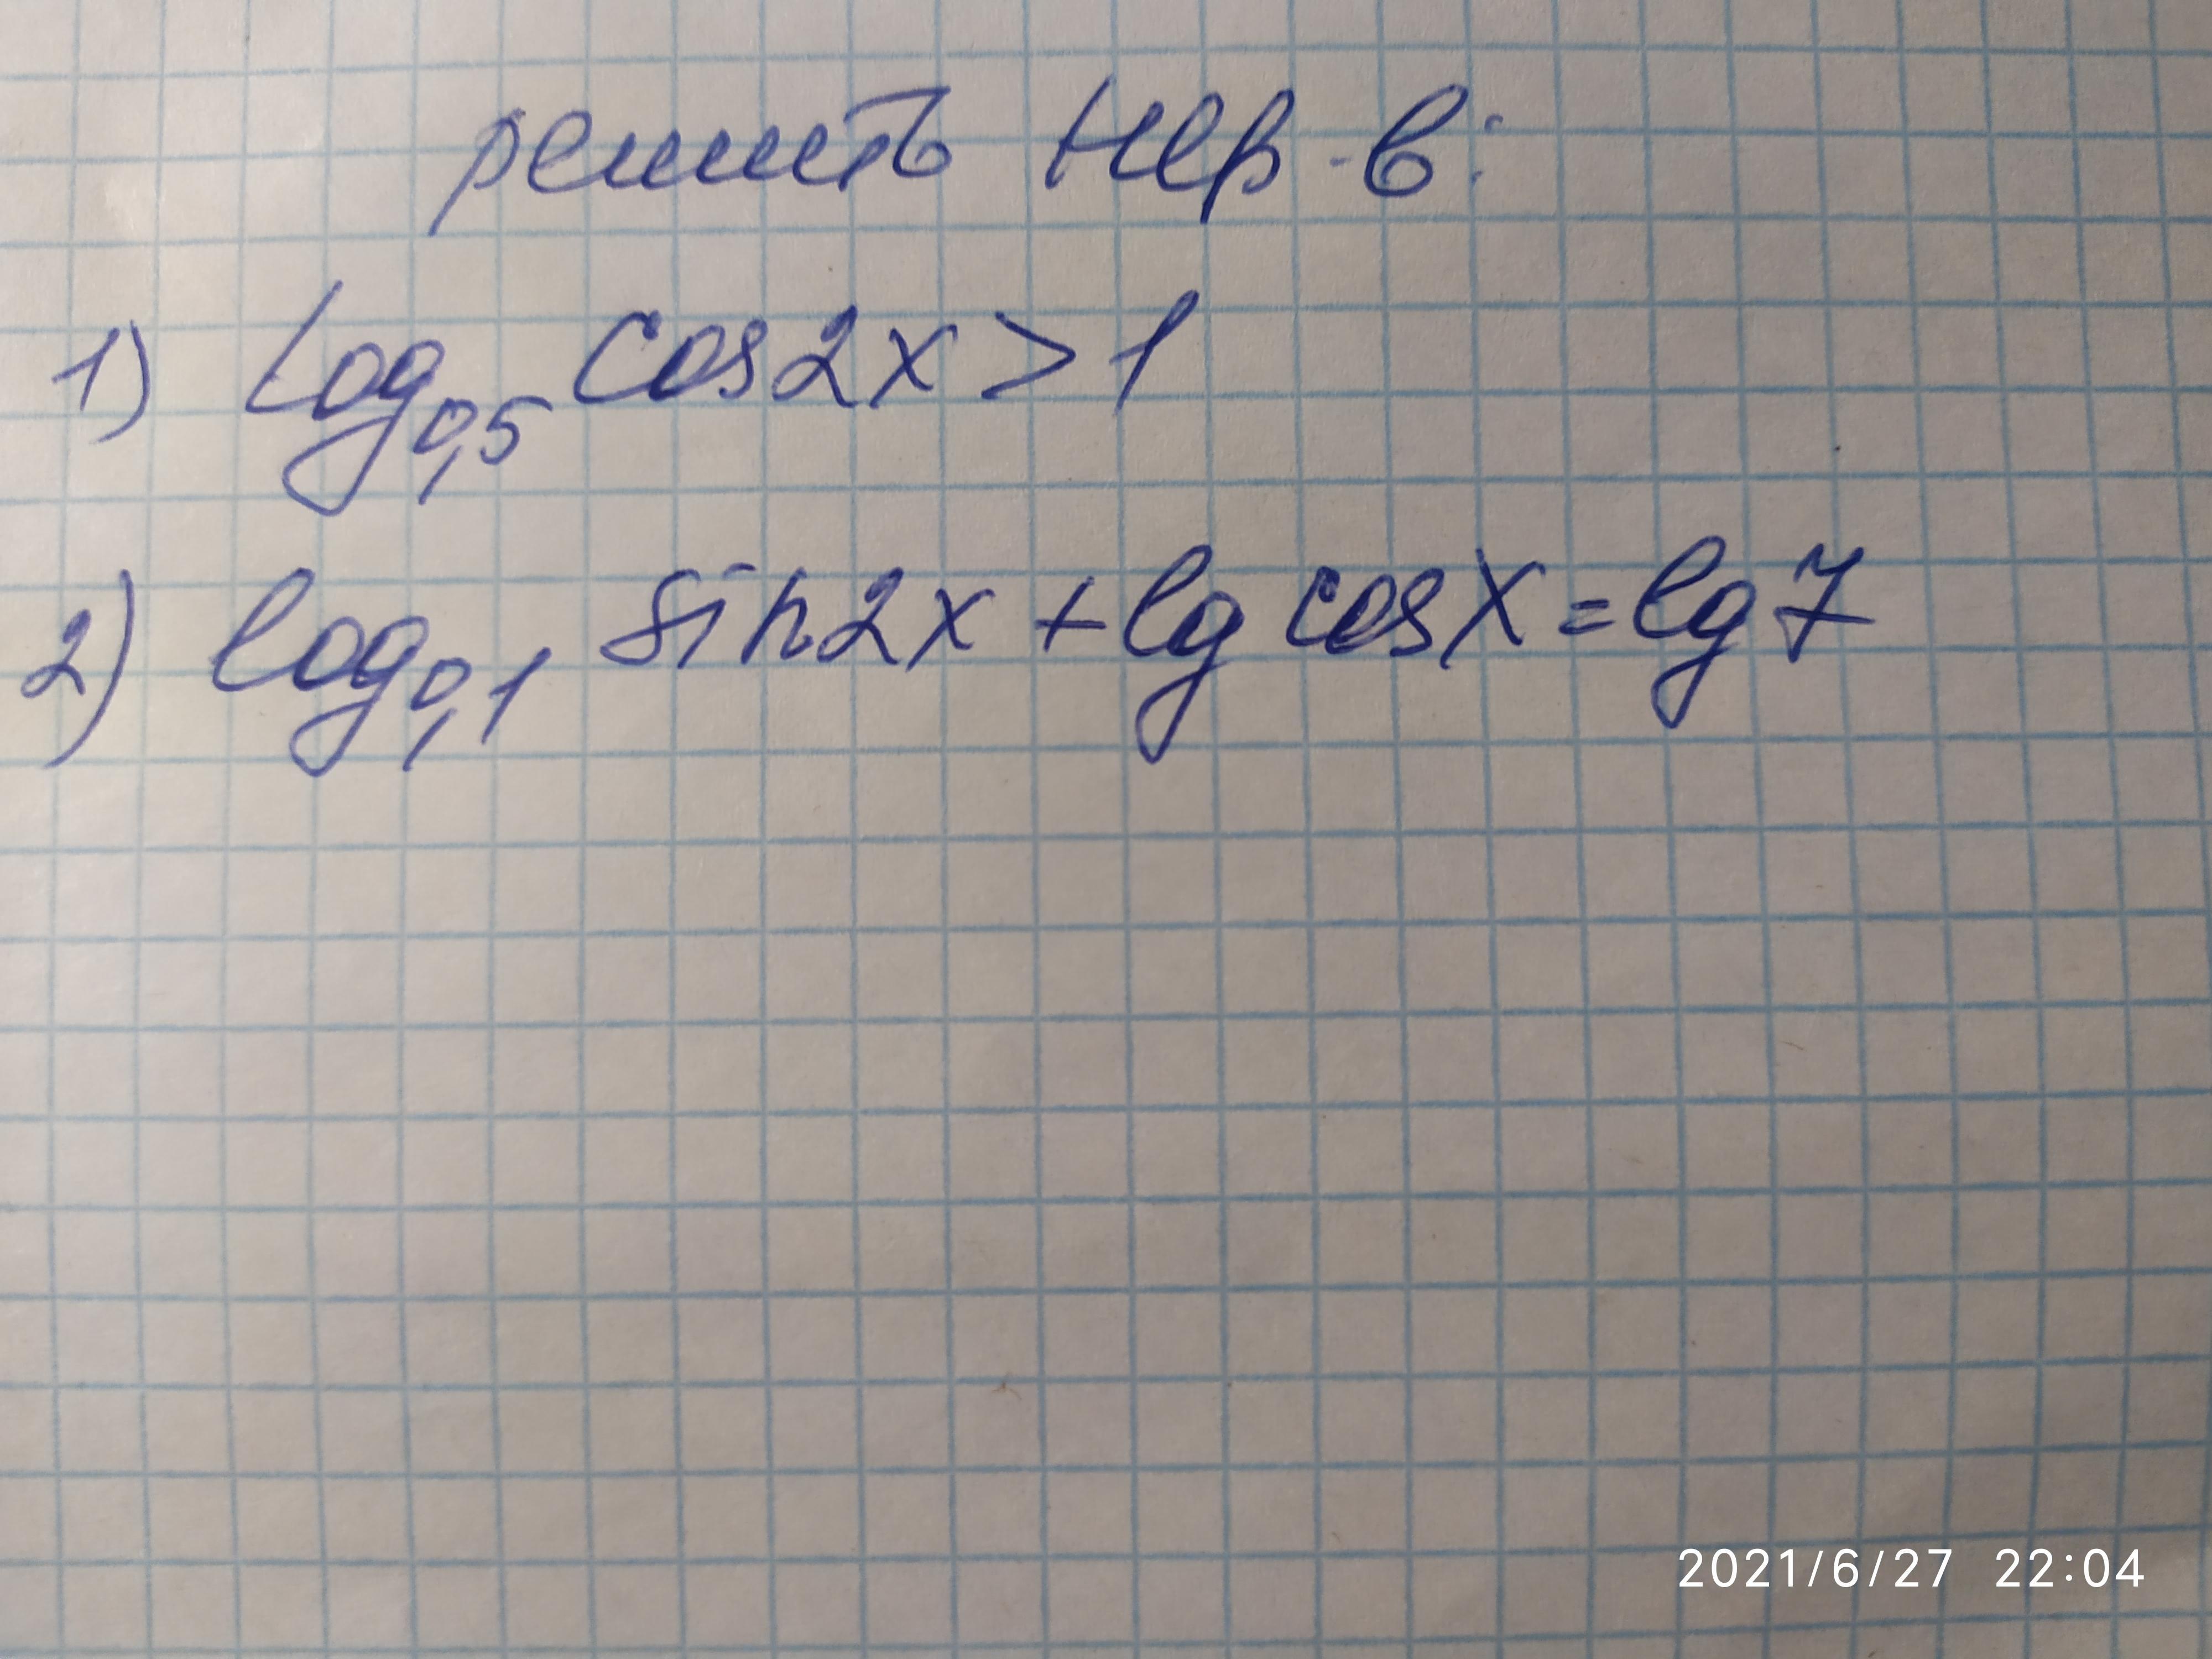 решить нер-в:
1) log₀,₅ cos2x > 1
2) log₀,₁ sin2x + lg cosx = lg7
2021/6/27 22:04